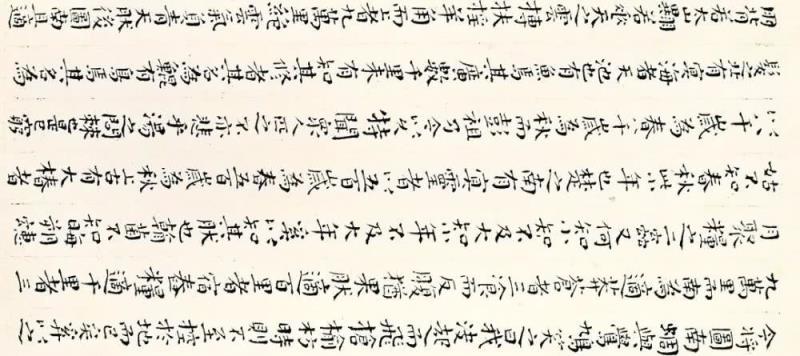 今將圖南蜩與鷽鳩笑之曰我決起而飛搶榆枋時則不至控於地而已矣奚以之
九萬里而南為適莽蒼者三飡而反腹猶果然適百里者宿舂糧適千里者三
月聚糧之二蟲又何知小知不及大知小年不及大年奚以知其然也朝菌不知晦朔蟪
蛄不知春秋此小年也楚之南有冥靈者以五百歲為春五百歲為秋上古有大椿者
以八千歲為春八千歲為秋而彭祖乃今以久特聞眾人匹之不亦悲乎湯之問棘也是已窮
髮之北有冥海者天池也有魚焉其廣數千里未有知其修者其名為鯤有鳥焉其名為
鵬背若太山翼若垂天之雲摶扶搖羊角而上者九萬里絕雲氣負青天然後圖南且適